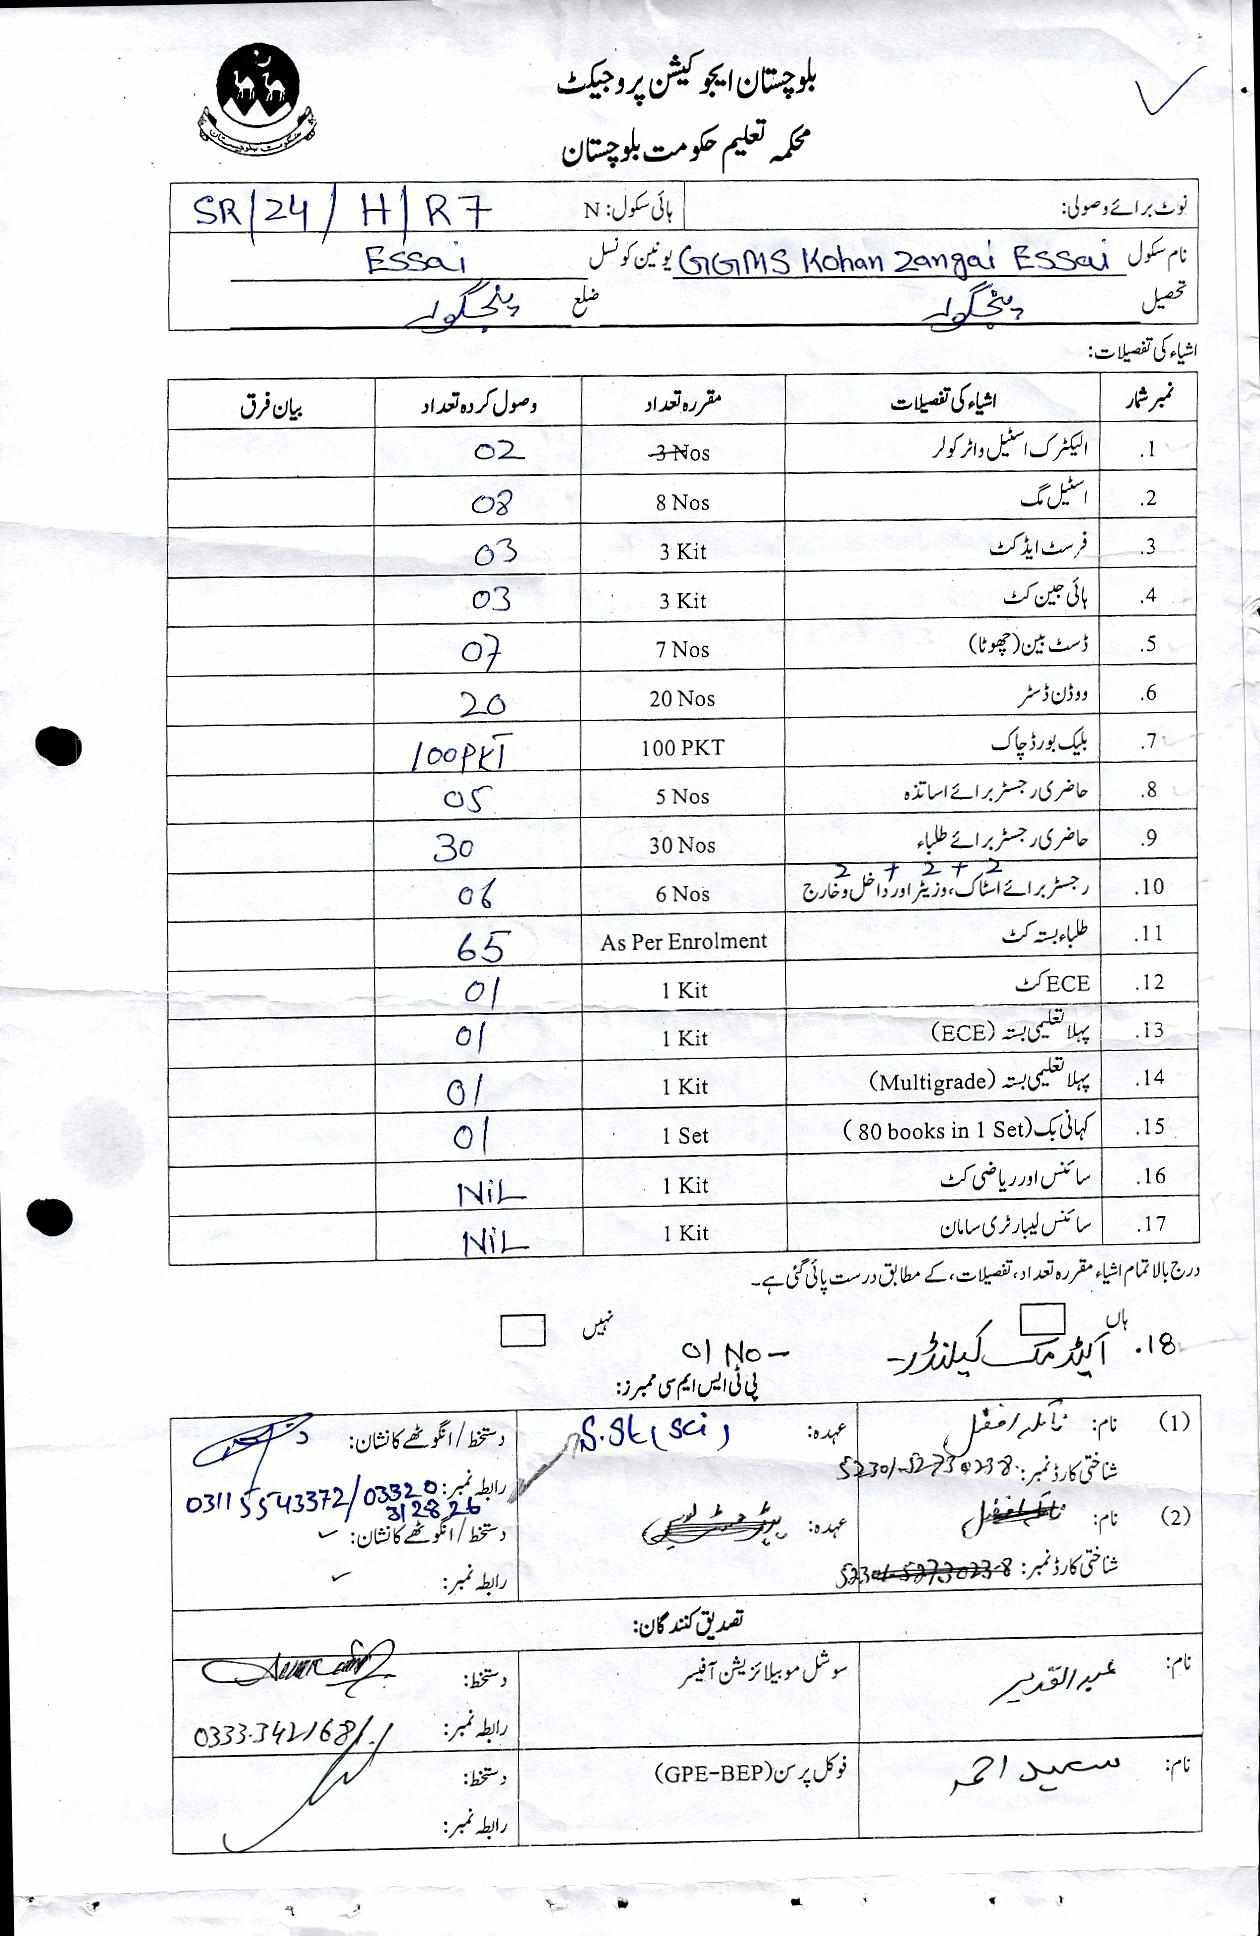 بلوچستان ایجوکیشن پروجیکٹ
محکمہ تعلیم حکومت بلوچستان
حکومت بلوچستان
نوٹ برائے وصولی: ہائی سکول: N SR/24/H/R7
نام سکول GGMS Kohan Zangai Essai یونین کونسل Essai
تحصیل پنجگور ضلع پنجگور
اشیاء کی تفصیلات:
نمبر شمار اشیاء کی تفصیلات مقررہ تعداد وصول کردہ تعداد بیان فرق
1. الیکٹرک اسٹیل واٹر کولر 3 Nos 02
2. اسٹیل مگ 8 Nos 08
3. فرسٹ ایڈ کٹ 3 Kit 03
4. ہائی جین کٹ 3 Kit 03
5. ڈسٹ بین (چھوٹا) 7 Nos 07
6. ووڈن ڈسٹر 20 Nos 20
7. بلیک بورڈ چاک 100 PKT 100 PKT
8. حاضری رجسٹر برائے اساتذہ 5 Nos 05
9. حاضری رجسٹر برائے طلباء 30 Nos 30
2 + 2 + 2
10. رجسٹر برائے اسٹاک، وزیٹر اور داخل و خارج 6 Nos 06
11. طلباء بستہ کٹ As Per Enrolment 65
12. ECE کٹ 1 Kit 01
13. پہلا تعلیمی بستہ (ECE) 1 Kit 01
14. پہلا تعلیمی بستہ (Multigrade) 1 Kit 01
15. کہانی بک (80 books in 1 Set) 1 Set 01
16. سائنس اور ریاضی کٹ 1 Kit NiL
17. سائنس لیبارٹری سامان 1 Kit NiL
درج بالا تمام اشیاء مقررہ تعداد، تفصیلات، کے مطابق درست پائی گئی ہے۔
ہاں نہیں
18. اکیڈمک کیلنڈر - 01 No -
پی ٹی ایس ایم سی ممبرز:
(1) نام: عہدہ: S.St (Sci) دستخط / انگوٹھے کا نشان:
شناختی کارڈ نمبر: رابطہ نمبر: 03115543372/03320
312826
(2) نام: عہدہ: دستخط / انگوٹھے کا نشان:
شناختی کارڈ نمبر: 52301-5273023-8 رابطہ نمبر:
تصدیق کنندگان:
نام: عبدالقدیر سوشل موبیلائزیشن آفیسر دستخط:
رابطہ نمبر: 0333.3421681
نام: سعید احمد فوکل پرسن (GPE-BEP) دستخط:
رابطہ نمبر: